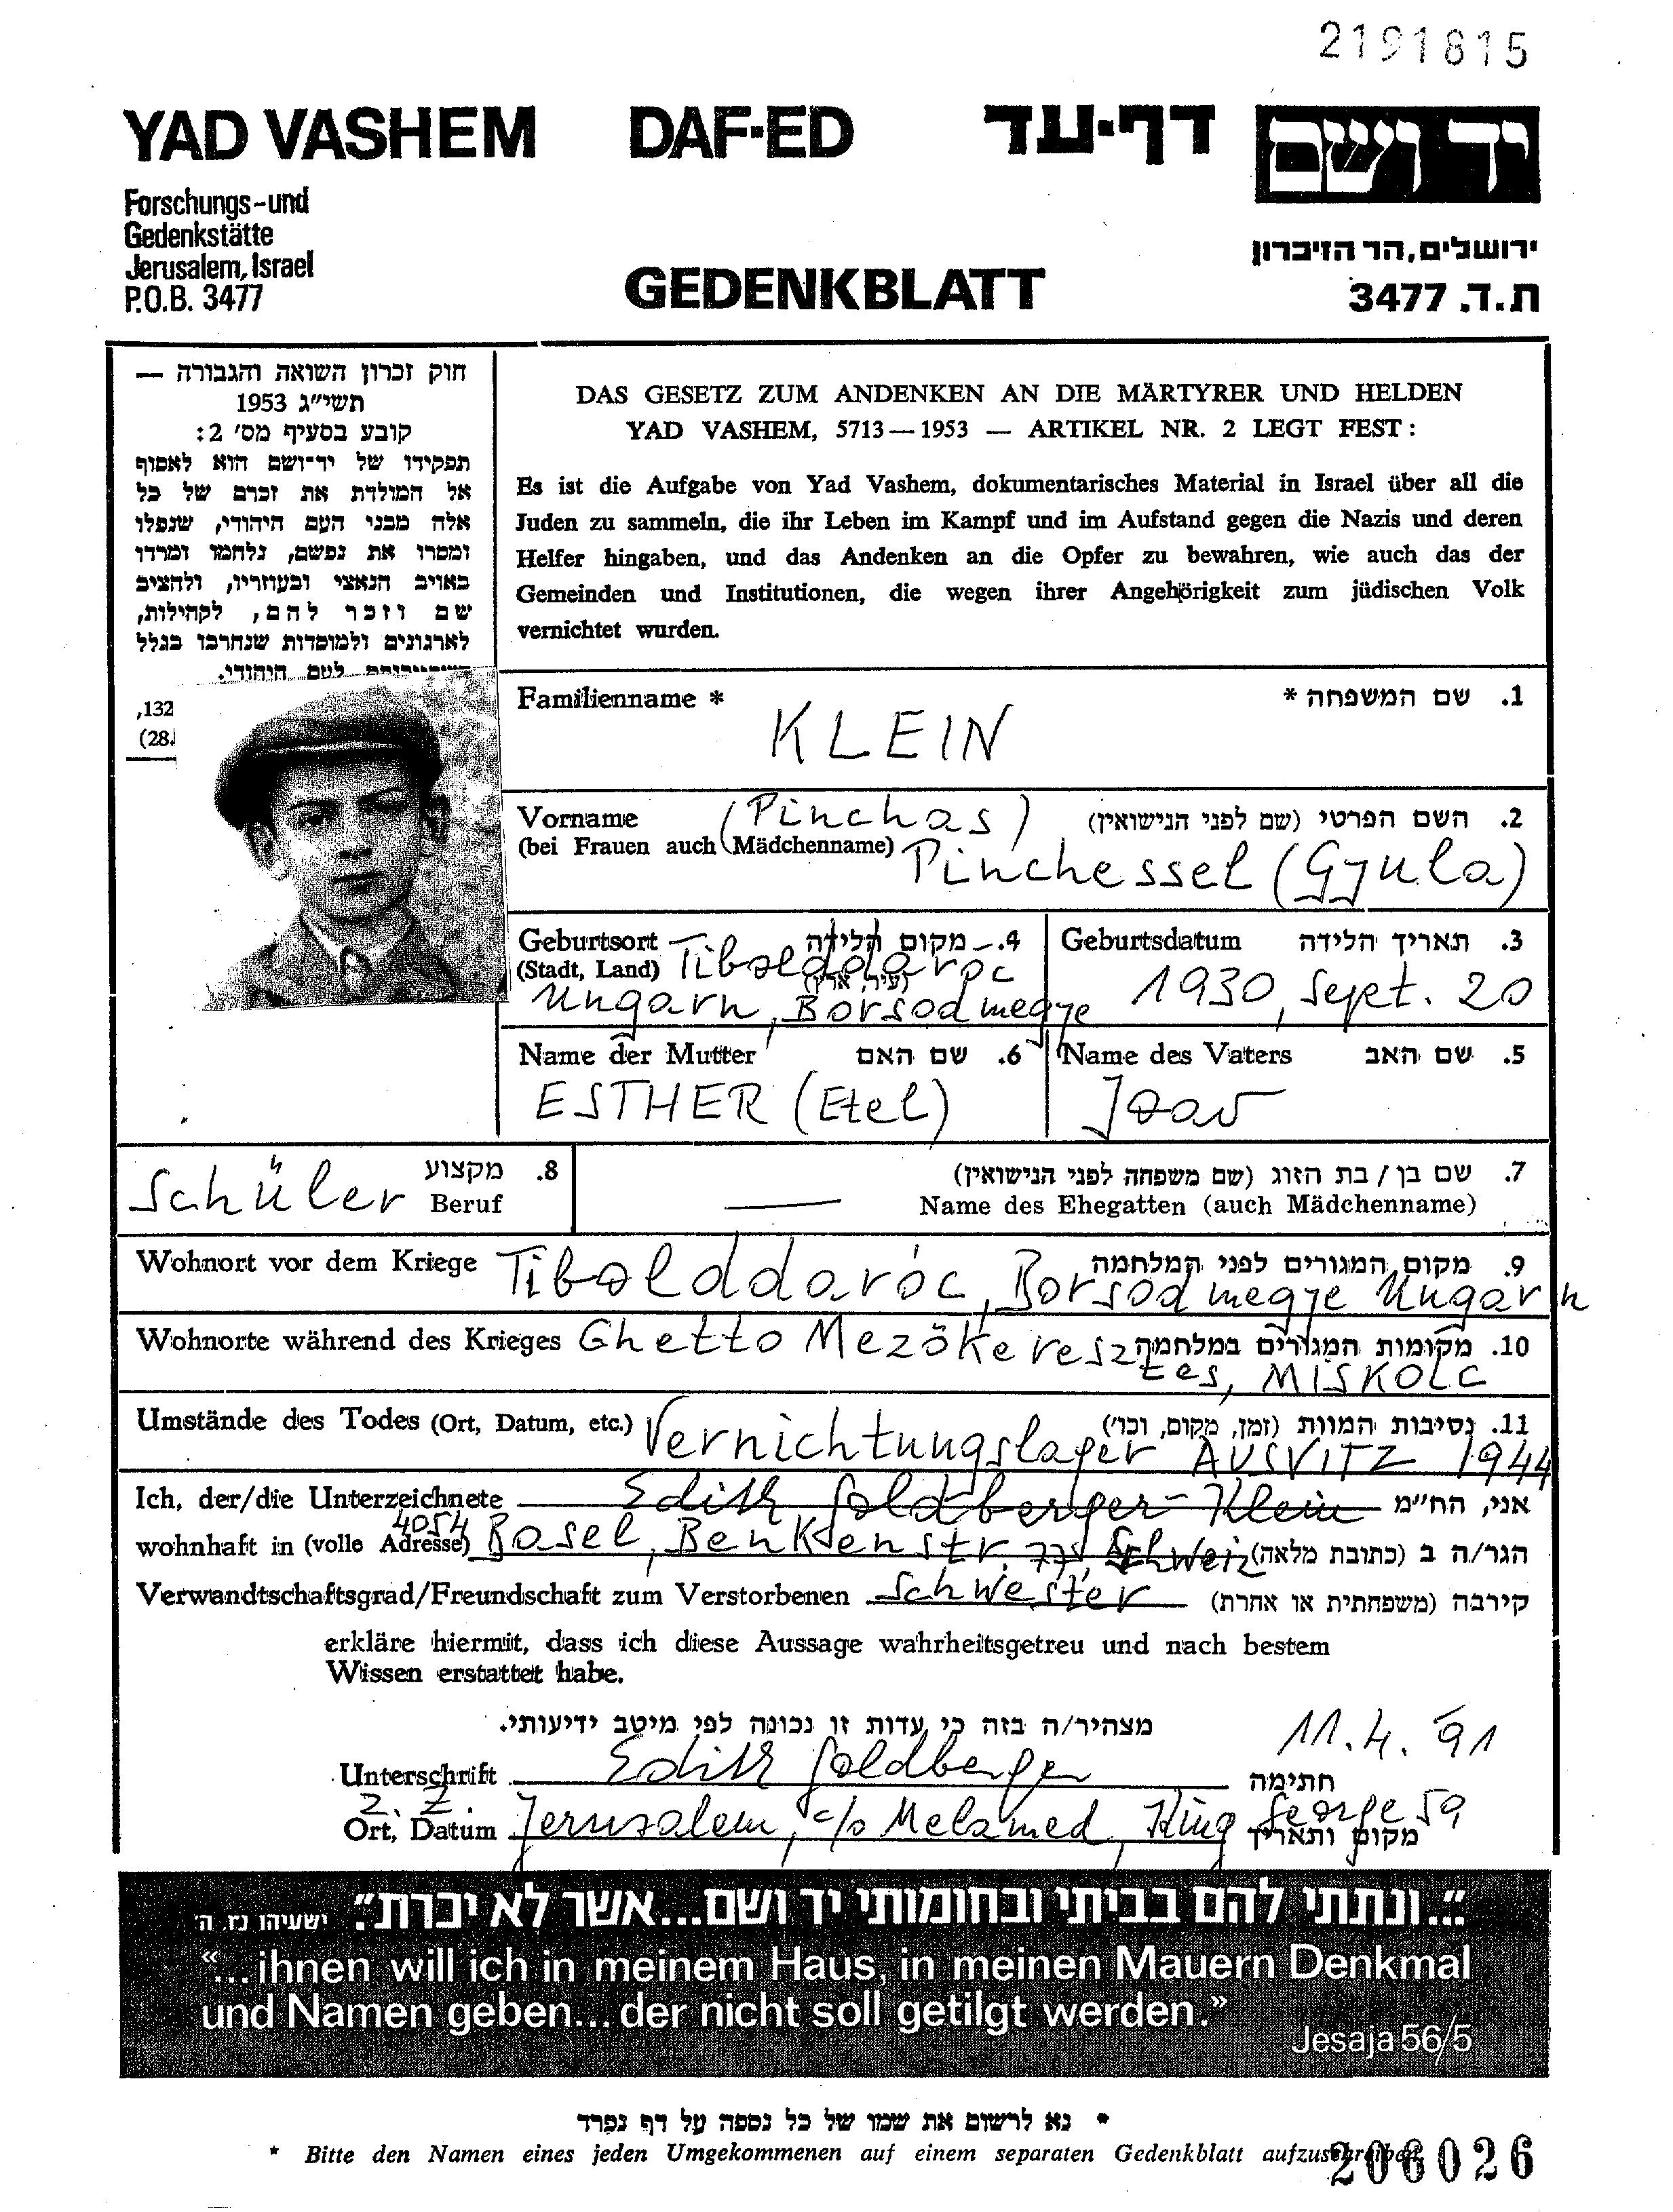 2191815
YAD VASHEM DAF-ED דף-עד יד ושם
Forschungs-und
Gedenkstätte
Jerusalem, Israel
P.O.B. 3477
GEDENKBLATT
ירושלים, הר הזיכרון
ת.ד. 3477
חוק זכרון השואה והגבורה —
תשי״ג 1953
קובע בסעיף מס' 2:
תפקידו של יד־ושם הוא לאסוף
אל המולדת את זכרם של כל
אלה מבני העם היהודי, שנפלו
ומסרו את נפשם, נלחמו ומרדו
באויב הנאצי ובעוזריו, ולהציב
שם וזכר להם, לקהילות,
לארגונים ולמוסדות שנחרבו בגלל
לעם היהודי.
132,
(28.
DAS GESETZ ZUM ANDENKEN AN DIE MÄRTYRER UND HELDEN
YAD VASHEM, 5713—1953 — ARTIKEL NR. 2 LEGT FEST:
Es ist die Aufgabe von Yad Vashem, dokumentarisches Material in Israel über all die
Juden zu sammeln, die ihr Leben im Kampf und im Aufstand gegen die Nazis und deren
Helfer hingaben, und das Andenken an die Opfer zu bewahren, wie auch das der
Gemeinden und Institutionen, die wegen ihrer Angehörigkeit zum jüdischen Volk
vernichtet wurden.
Familienname * 1. שם המשפחה *
KLEIN
Vorname (Pinchas) 2. השם הפרטי (שם לפני הנישואין)
(bei Frauen auch Mädchenname) Pinchessel (Gyula)
Geburtsort 4. מקום הלידה
(Stadt, Land) Tibolddaroc (עיר, ארץ)
Ungarn, Borsod megye
Geburtsdatum 3. תאריך הלידה
1930, Sept. 20
Name der Mutter 6. שם האם
ESTHER (Etel)
Name des Vaters 5. שם האב
Schüler 8. מקצוע
Beruf
7. שם בן / בת הזוג (שם משפחה לפני הנישואין)
Name des Ehegatten (auch Mädchenname)
Wohnort vor dem Kriege 9. מקום המגורים לפני המלחמה
Tibolddaróc, Borsod megye Ungarn
Wohnorte während des Krieges 10. מקומות המגורים במלחמה
Ghetto Mezőkeresztes, MISKOLC
Umstände des Todes (Ort, Datum, etc.) 11. נסיבות המוות (זמן, מקום, וכו')
Vernichtungslager AUSVITZ 1944
Ich, der/die Unterzeichnete Edith Goldberger-Klein אני, הח״מ
4054
wohnhaft in (volle Adresse) Basel, Benkenstr. Schweiz הגר/ה ב (כתובת מלאה)
Verwandtschaftsgrad/Freundschaft zum Verstorbenen Schwester קירבה (משפחתית או אחרת)
erkläre hiermit, dass ich diese Aussage wahrheitsgetreu und nach bestem
Wissen erstattet habe.
מצהיר/ה בזה כי עדות זו נכונה לפי מיטב ידיעותי.
11.4.91
Unterschrift Edith Goldberger חתימה
z. Z.
Ort, Datum Jerusalem, c/o Melamed, King George 59 מקום ותאריך
״...ונתתי להם בביתי ובחומותי יד ושם...אשר לא יכרת״. ישעיהו נו, ה'
“...ihnen will ich in meinem Haus, in meinen Mauern Denkmal
und Namen geben... der nicht soll getilgt werden.”
Jesaja 56/5
* נא לרשום את שמו של כל נספה על דף נפרד
* Bitte den Namen eines jeden Umgekommenen auf einem separaten Gedenkblatt aufzuschreiben
206026